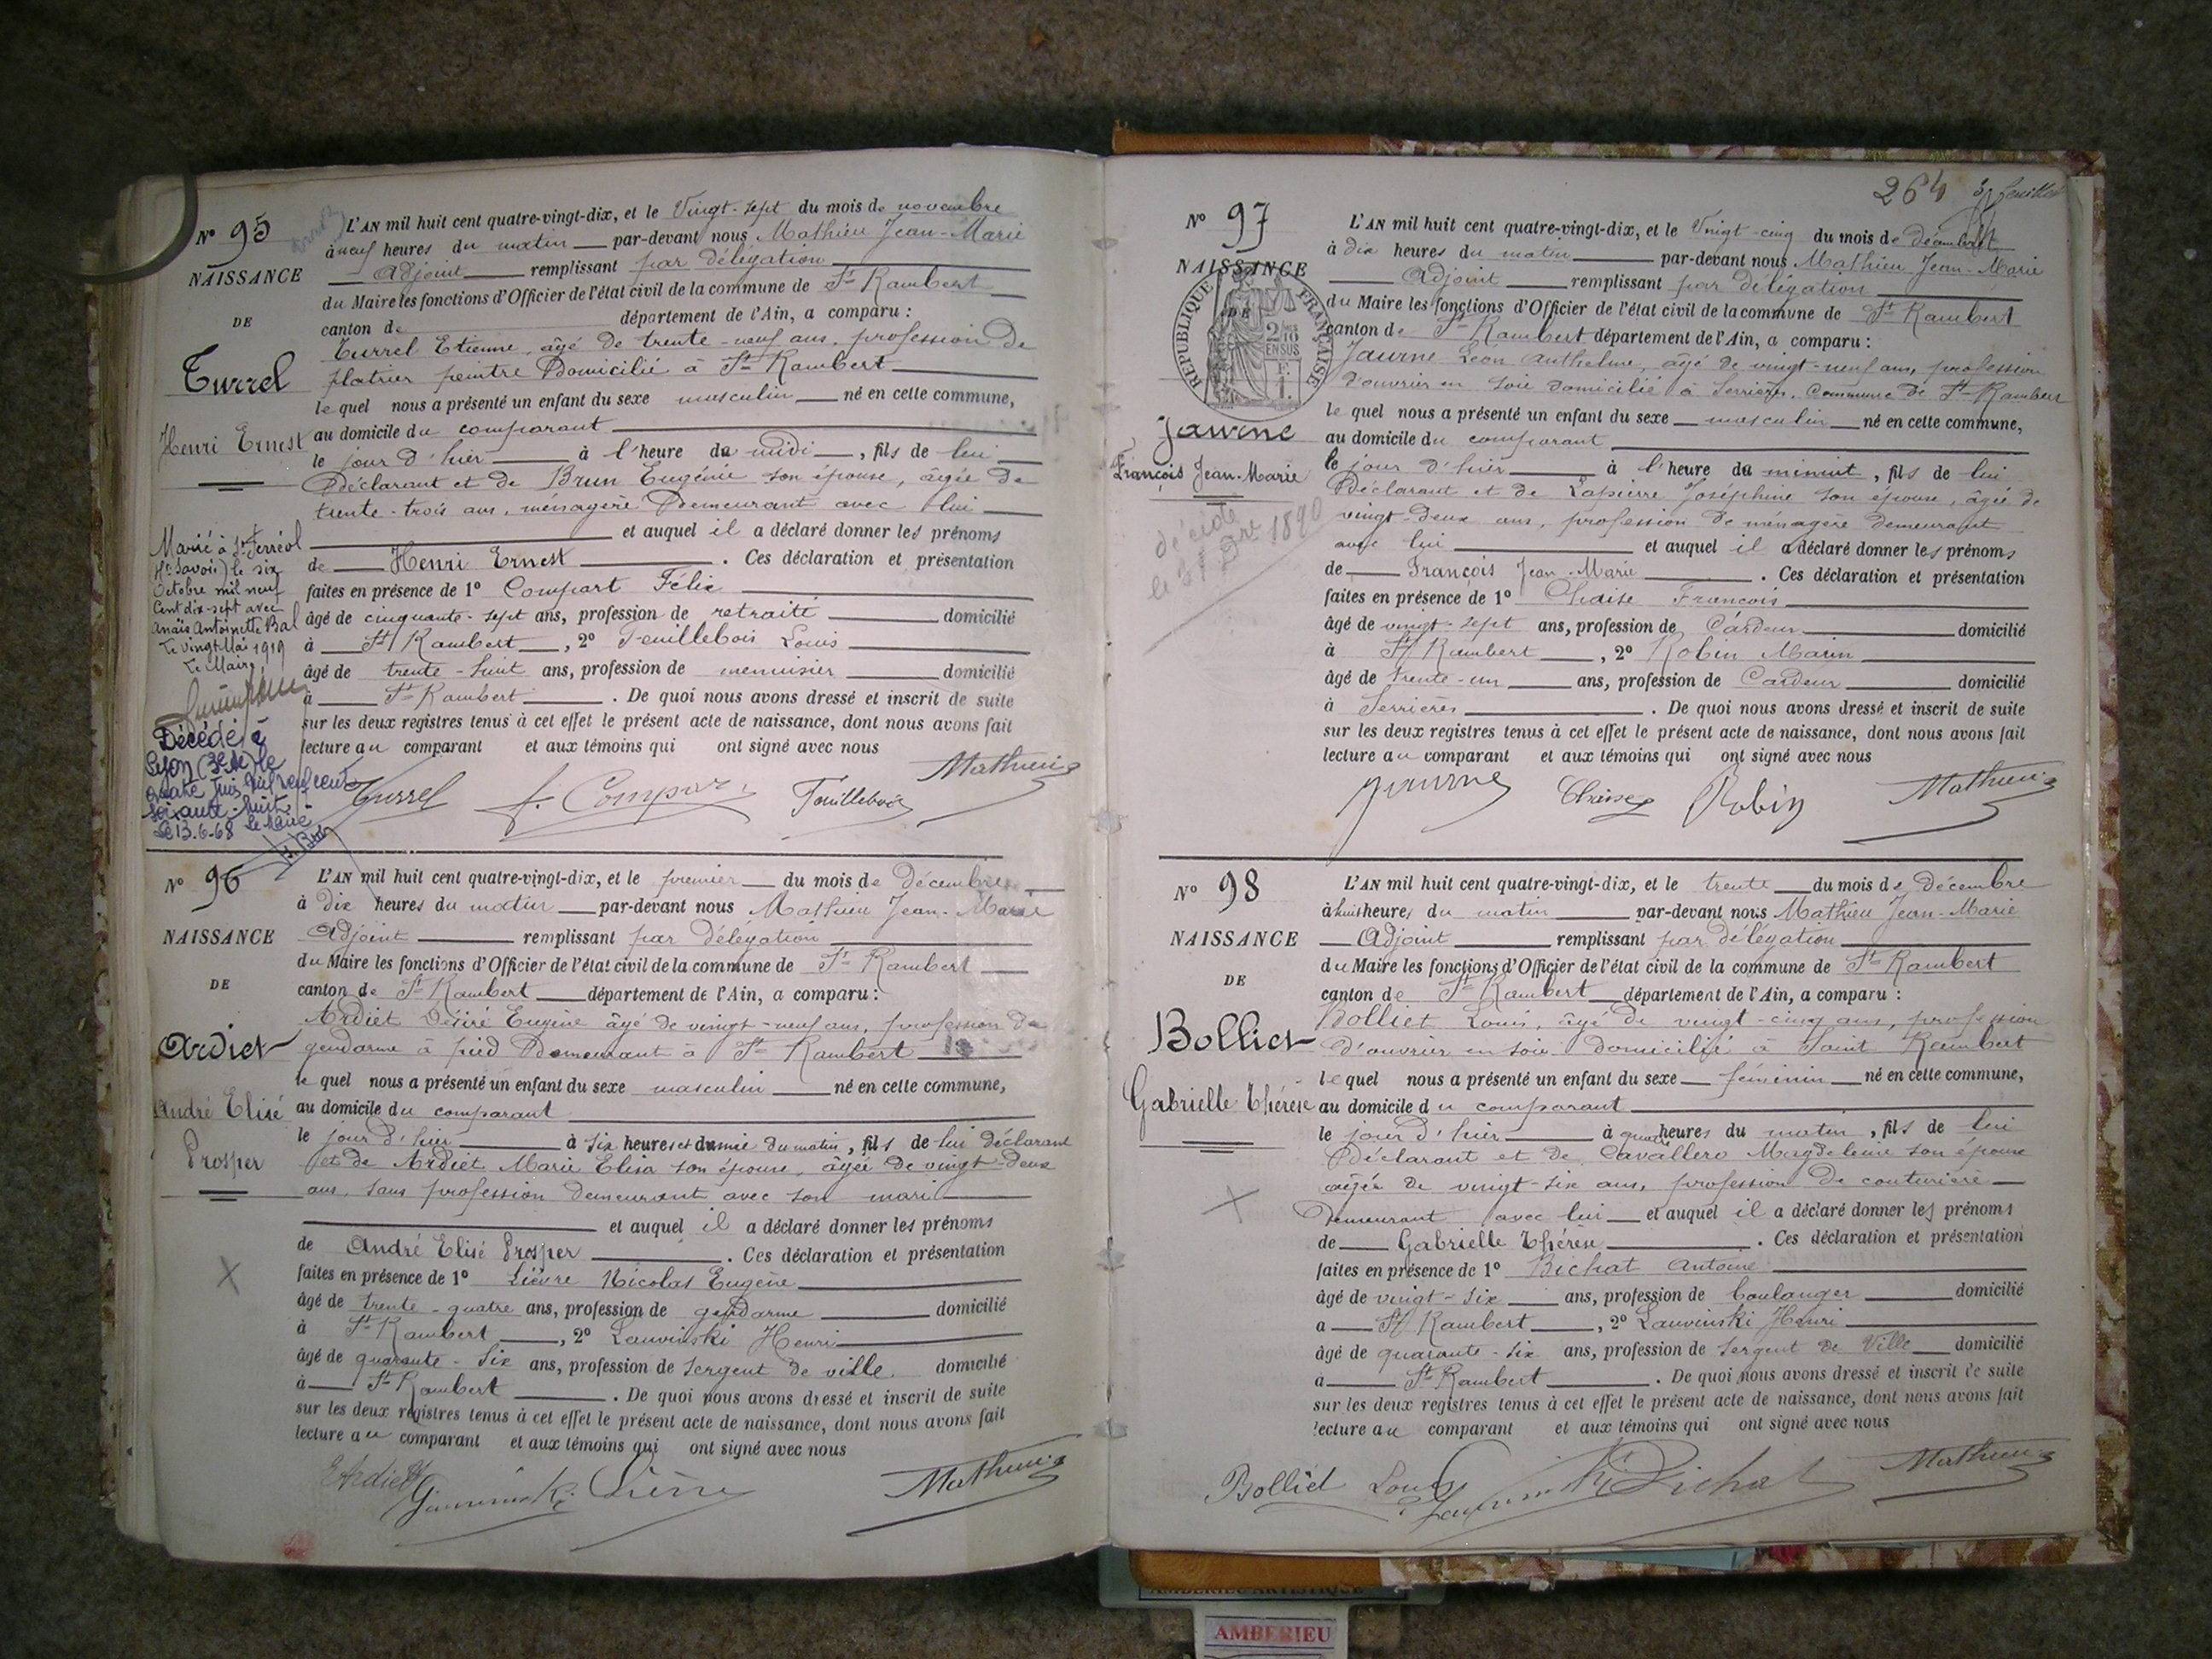 N° 95
NAISSANCE
DE
Turrel
Henri Ernest
Marié à St Ferréol
(Hte Savoie) le six
Octobre mil neuf
Cent dix-sept avec
Anaïs Antoinette Bal
Le vingt Mai 1919
Le Maire,
Décédé à
Lyon (3e Ar) le
quatre Juin mil neuf cent
soixante-huit.
Le 13-6-68 Le Maire
L'AN mil huit cent quatre-vingt-dix, et le Vingt-sept du mois de novembre
à neuf heures du matin par-devant nous Mathieu Jean-Marie
Adjoint remplissant par délégation
du Maire les fonctions d'Officier de l'état civil de la commune de St Rambert
canton de département de l'Ain, a comparu :
Turrel Etienne, âgé de trente-neuf ans, profession de
platrier peintre Domicilié à St Rambert
le quel nous a présenté un enfant du sexe masculin né en cette commune,
au domicile du comparant
le jour d'hier à l'heure de midi, fils de lui
Déclarant et de Brun Eugénie son épouse, âgée de
trente-trois ans, ménagère Demeurant avec lui
et auquel il a déclaré donner les prénoms
de Henri Ernest. Ces déclaration et présentation
faites en présence de 1° Compart Félix
âgé de cinquante-sept ans, profession de retraité domicilié
à St Rambert, 2° Feuillebois Louis
âgé de trente-huit ans, profession de menuisier domicilié
à St Rambert. De quoi nous avons dressé et inscrit de suite
sur les deux registres tenus à cet effet le présent acte de naissance, dont nous avons fait
lecture au comparant et aux témoins qui ont signé avec nous
Turrel f. Compart Feuillebois Mathieu
N° 96
NAISSANCE
DE
Ardiet
André Elisé
Prosper
L'AN mil huit cent quatre-vingt-dix, et le premier du mois de Décembre
à dix heures du matin par-devant nous Mathieu Jean-Marie
Adjoint remplissant par délégation
du Maire les fonctions d'Officier de l'état civil de la commune de St Rambert
canton de St Rambert département de l'Ain, a comparu :
Ardiet Désiré Eugène âgé de vingt-neuf ans, profession de
gendarme à pied Demeurant à St Rambert
le quel nous a présenté un enfant du sexe masculin né en cette commune,
au domicile du comparant
le jour d'hier à six heures et demie du matin, fils de lui déclarant
et de Ardiet Marie Elisa son épouse, âgée de vingt-deux
ans, sans profession demeurant avec son mari
et auquel il a déclaré donner les prénoms
de André Elisé Prosper. Ces déclaration et présentation
faites en présence de 1° Lièvre Nicolas Eugène
âgé de trente-quatre ans, profession de gendarme domicilié
à St Rambert, 2° Lauvinski Henri
âgé de quarante-six ans, profession de sergent de ville domicilié
à St Rambert. De quoi nous avons dressé et inscrit de suite
sur les deux registres tenus à cet effet le présent acte de naissance, dont nous avons fait
lecture au comparant et aux témoins qui ont signé avec nous
EArdiet Lièvre Mathieu
264
N° 97
NAISSANCE
DE
REPUBLIQUE FRANÇAISE
2/10
EN SUS
Jaurne
François Jean-Marie
décédé
le 31 Dre 1890
L'AN mil huit cent quatre-vingt-dix, et le Vingt-cinq du mois de décembre
à dix heures du matin par-devant nous Mathieu Jean-Marie
Adjoint remplissant par délégation
du Maire les fonctions d'Officier de l'état civil de la commune de St Rambert
canton de St Rambert département de l'Ain, a comparu :
Jaurne Léon Anthelme, âgé de vingt-neuf ans, profession
d'ouvrier en soie domicilié à Serrières, Commune de St Rambert
le quel nous a présenté un enfant du sexe masculin né en cette commune,
au domicile du comparant
le jour d'hier à l'heure de minuit, fils de lui
Déclarant et de Lapierre Joséphine son épouse, âgée de
vingt-deux ans, profession de ménagère demeurant
avec lui et auquel il a déclaré donner les prénoms
de François Jean-Marie. Ces déclaration et présentation
faites en présence de 1° Chaise François
âgé de vingt-sept ans, profession de Cardeur domicilié
à St Rambert, 2° Robin Marin
âgé de trente-un ans, profession de Cardeur domicilié
à Serrières. De quoi nous avons dressé et inscrit de suite
sur les deux registres tenus à cet effet le présent acte de naissance, dont nous avons fait
lecture au comparant et aux témoins qui ont signé avec nous
Jaurne Chaise Robin Mathieu
N° 98
NAISSANCE
DE
Bolliet
Gabrielle Thérèse
L'AN mil huit cent quatre-vingt-dix, et le trente du mois de décembre
à huit heures du matin par-devant nous Mathieu Jean-Marie
Adjoint remplissant par délégation
du Maire les fonctions d'Officier de l'état civil de la commune de St Rambert
canton de St Rambert département de l'Ain, a comparu :
Bolliet Louis, âgé de vingt-cinq ans, profession
d'ouvrier en soie domicilié à Saint Rambert
le quel nous a présenté un enfant du sexe féminin né en cette commune,
au domicile du comparant
le jour d'hier à quatre heures du matin, fils de lui
Déclarant et de Cavallero Magdeleine son épouse
âgée de vingt-six ans, profession de couturière
Demeurant avec lui et auquel il a déclaré donner les prénoms
de Gabrielle Thérèse. Ces déclaration et présentation
faites en présence de 1° Bichat Antoine
âgé de vingt-six ans, profession de boulanger domicilié
a St Rambert, 2° Lauvinski Henri
âgé de quarante-six ans, profession de sergent de Ville domicilié
à St Rambert. De quoi nous avons dressé et inscrit de suite
sur les deux registres tenus à cet effet le présent acte de naissance, dont nous avons fait
lecture au comparant et aux témoins qui ont signé avec nous
Bolliet Louis Bichat Mathieu
AMBERIEU ARTISTIQUE
AMBERIEU